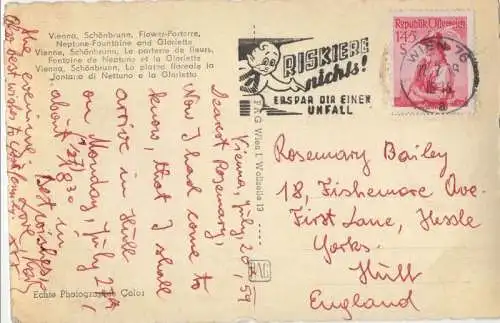 Vienna, Schönbrunn, Flower-Parterre,
Neptune-Fountaine and Gloriette
Vienne, Schönbrunn, Le parterre de fleurs,
Fontaine de Neptune et la Gloriette
Vienna, Schönbrunn, La piazza floreale la
fontana di Nettuno e la Glorietta
Vienna, July, 20, 59
Dearest Rosemary,
Now I had come to
know, that I shall
arrive in Hull
on Monday, July 27th,
about 8.30 in
the evening.
Best wishes,
love,
Echte Photographie Color
PAG Wien I. Wollzeile 13
PAG
RISKIERE
nichts!
ERSPAR DIR EINEN
UNFALL
Republik Österreich
1.45
S
WIEN 76
a
Rosemary Bailey
18, Fishemore Ave.
First Lane, Hessle
Yorks.
Hull
England